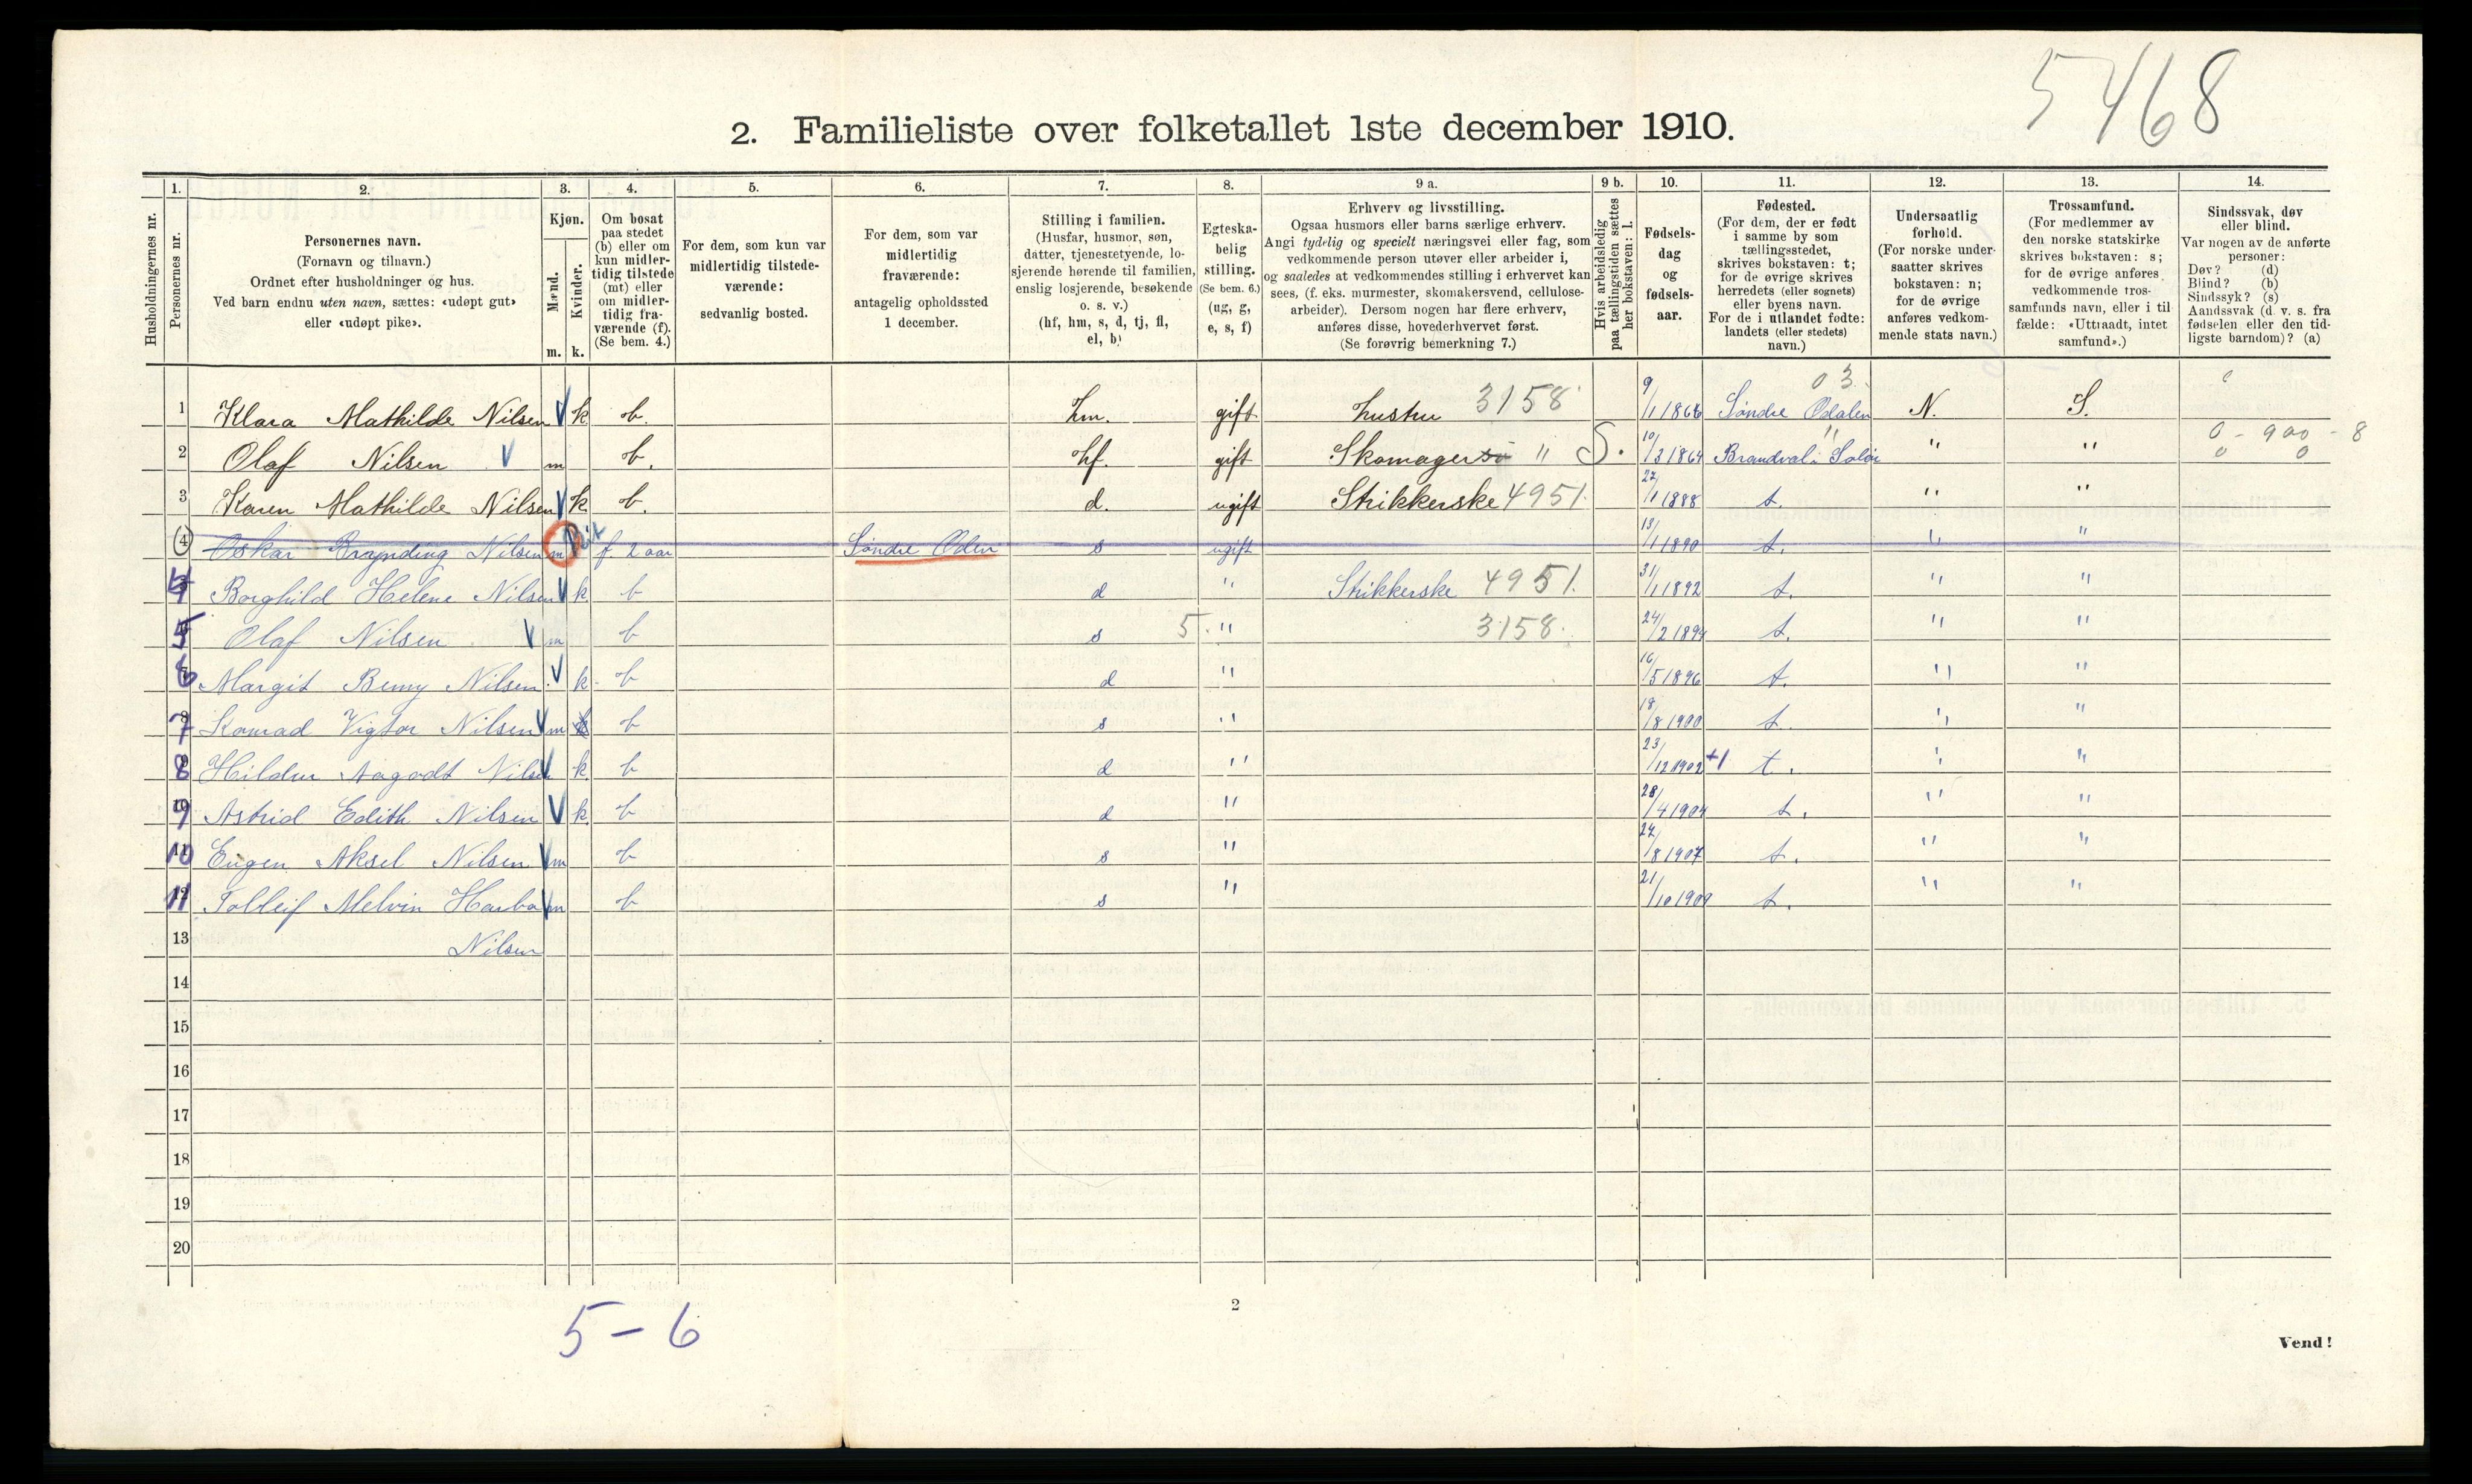 5468
2. Familieliste over folketallet 1ste december 1910.
Husholdningernes nr.
1. Personernes nr.
2. Personernes navn.
(Fornavn og tilnavn.)
Ordnet efter husholdninger og hus.
Ved barn endnu uten navn, sættes: «udøpt gut»
eller «udøpt pike».
3. Kjøn.
Mænd. m.
Kvinder. k.
4. Om bosat
paa stedet
(b) eller om
kun midler-
tidig tilstede
(mt) eller
om midler-
tidig fra-
værende (f).
(Se bem. 4.)
5. For dem, som kun var
midlertidig tilstede-
værende:
sedvanlig bosted.
6. For dem, som var
midlertidig
fraværende:
antagelig opholdssted
1 december.
7. Stilling i familien.
(Husfar, husmor, søn,
datter, tjenestetyende, lo-
sjerende hørende til familien,
enslig losjerende, besøkende
o. s. v.)
(hf, hm, s, d, tj, fl,
el, b)
8. Egteska-
belig
stilling.
(Se bem. 6.)
(ug, g,
e, s, f)
9 a. Erhverv og livsstilling.
Ogsaa husmors eller barns særlige erhverv.
Angi tydelig og specielt næringsvei eller fag, som
vedkommende person utøver eller arbeider i,
og saaledes at vedkommendes stilling i erhvervet kan
sees, (f. eks. murmester, skomakersvend, cellulose-
arbeider). Dersom nogen har flere erhverv,
anføres disse, hovederhvervet først.
(Se forøvrig bemerkning 7.)
9 b. Hvis arbeidsledig
paa tællingstiden sættes
her bokstaven: l.
10. Fødsels-
dag
og
fødsels-
aar.
11. Fødested.
(For dem, der er født
i samme by som
tællingsstedet,
skrives bokstaven: t;
for de øvrige skrives
herredets (eller sognets)
eller byens navn.
For de i utlandet fødte:
landets (eller stedets)
navn.)
12. Undersaatlig
forhold.
(For norske under-
saatter skrives
bokstaven: n;
for de øvrige
anføres vedkom-
mende stats navn.)
13. Trossamfund.
(For medlemmer av
den norske statskirke
skrives bokstaven: s;
for de øvrige anføres
vedkommende tros-
samfunds navn, eller i til-
fælde: «Uttraadt, intet
samfund».)
14. Sindssvak, døv
eller blind.
Var nogen av de anførte
personer:
Døv? (d)
Blind? (b)
Sindssyk? (s)
Aandssvak (d. v. s. fra
fødselen eller den tid-
ligste barndom)? (a)
03.
1 Klara Mathilde Nilsen k b. hm. gift hustru 3158 9/1 1866 Søndre Odalen N. S.
0 - 900 - 8
2 Olaf Nilsen m b. hf. gift Skomager " S. 10/3 1864 Brandval i Soløi " " 0 0
3 Karen Mathilde Nilsen k b. d. ugift Strikkerske 4951. 27/1 1888 t. " "
4 Oskar Nilsen m f. 2 aar Søndre s ugift 13/1 1890 t. " "
4 Borghild Helene Nilsen k b d " Strikkerske 4951. 31/1 1892 t. " "
5 Olaf Nilsen m b s 5. " 3158. 24/2 1894 t. " "
6 Margit Benny Nilsen k b d " 16/5 1896 t. " "
7 Konrad Vigtor Nilsen m b s " 18/8 1900 t. " "
8 Hildur Aagodt Nilsen k b d " 23/12 1902 +1 t. " "
9 Astrid Edith Nilsen k b d " 28/4 1904 t. " "
10 Eugen Aksel Nilsen m b s " 24/8 1907 t. " "
11 Tolleif Melvin Harbo m b s " 21/10 1909 t. " "
13 Nilsen
14
15
16
17
18
19
20
5-6
2
Vend!